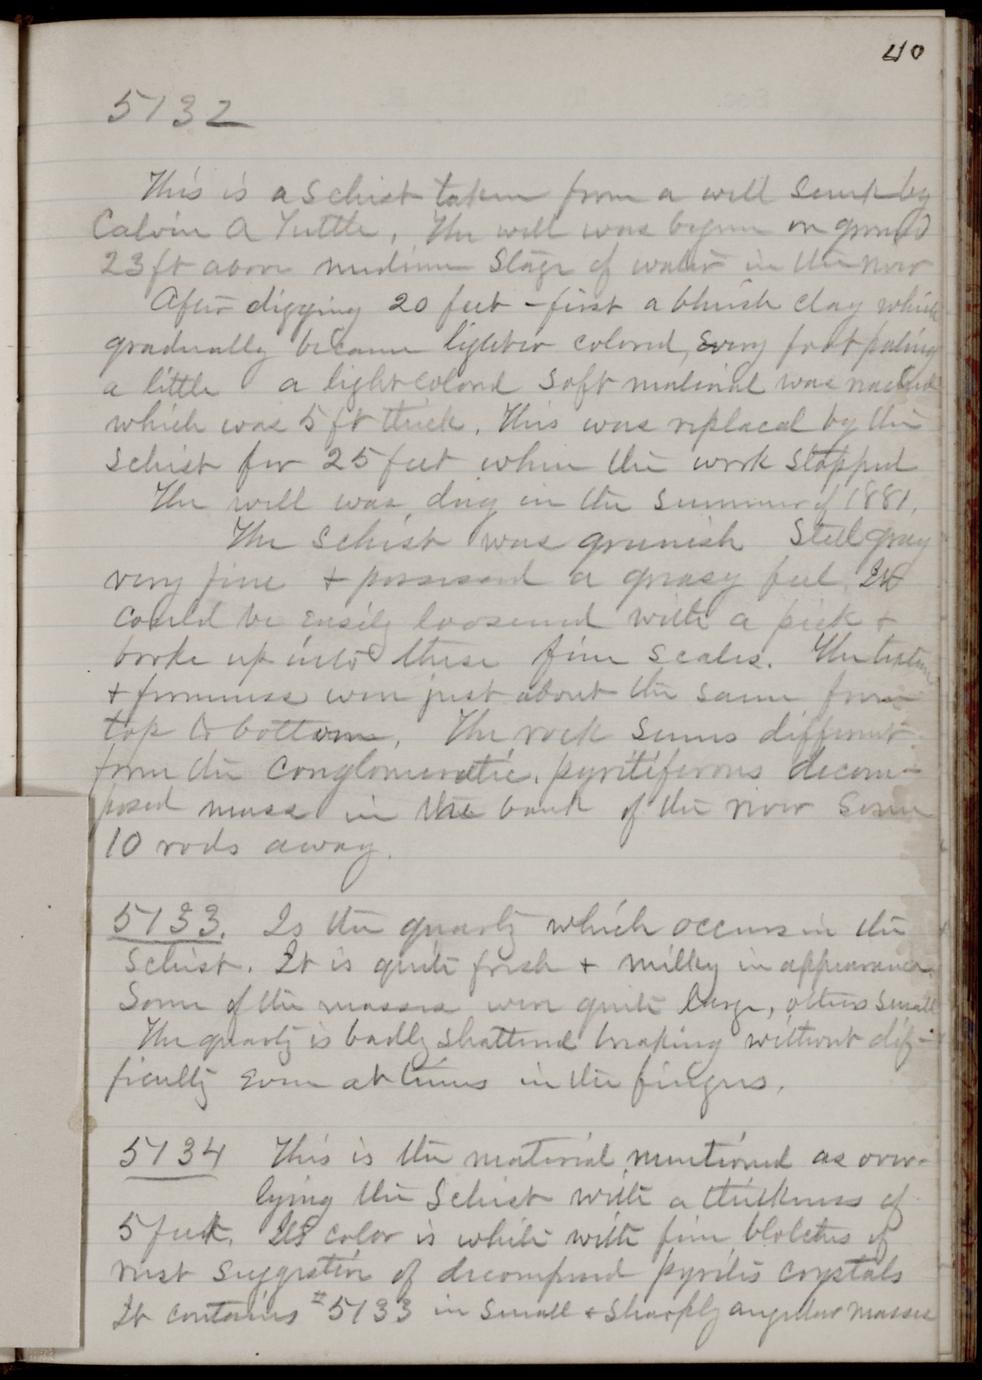 40
5132
This is a schist taken from a well sunk by
Calvin A Tuttle. The well was begun on ground
23 ft above medium stage of water in the river
After digging 20 feet - first a bluish clay which
gradually became lighter colored, every foot paling
a little a light colored soft material was reached
which was 5 ft thick. This was replaced by the
schist for 25 feet when the work stopped
The well was dug in the summer of 1881.
The schist was greenish steel gray
very fine + possessed a greasy feel. It
could be easily loosened with a pick +
broke up into these fine scales. The texture
+ firmness were just about the same from
top to bottom. The rock seems different
from the conglomeratic, pyritiferous decom-
posed mass in the bank of the river some
10 rods away.
5133. Is the quartz which occurs in the
schist. It is quite fresh + milky in appearance.
Some of the masses were quite large, others small
The quartz is badly shattered breaking without dif-
ficulty even at times in the fingers.
5134 This is the material mentioned as over-
lying the schist with a thickness of
5 feet. Its color is white with fine blotches of
rust suggestive of decomposed pyrites crystals
It contains #5133 in small + sharply angular masses